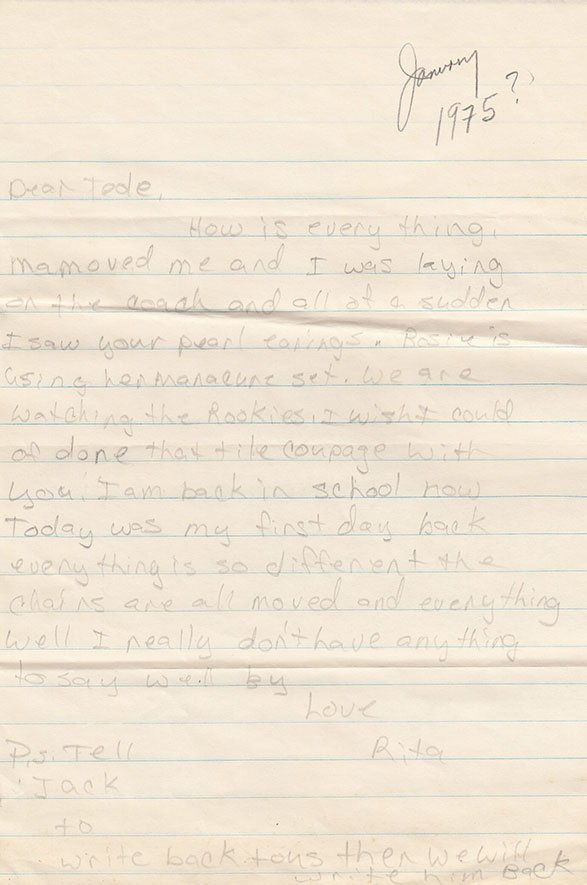 January
1975?
Dear Tede,
How is every thing,
mamoved me and I was laying
on the coach and all of a sudden
I saw your pearl earings. Rosie is
using her manacure set. We are
watching the Rookies. I wish I could
of done that tile coupage with
you. I am back in school now
Today was my first day back
everything is so different the
chairs are all moved and everything
well I really don't have anything
to say well by
Love
Rita
P.s. Tell
Jack
to
write back to us then we will
write him back